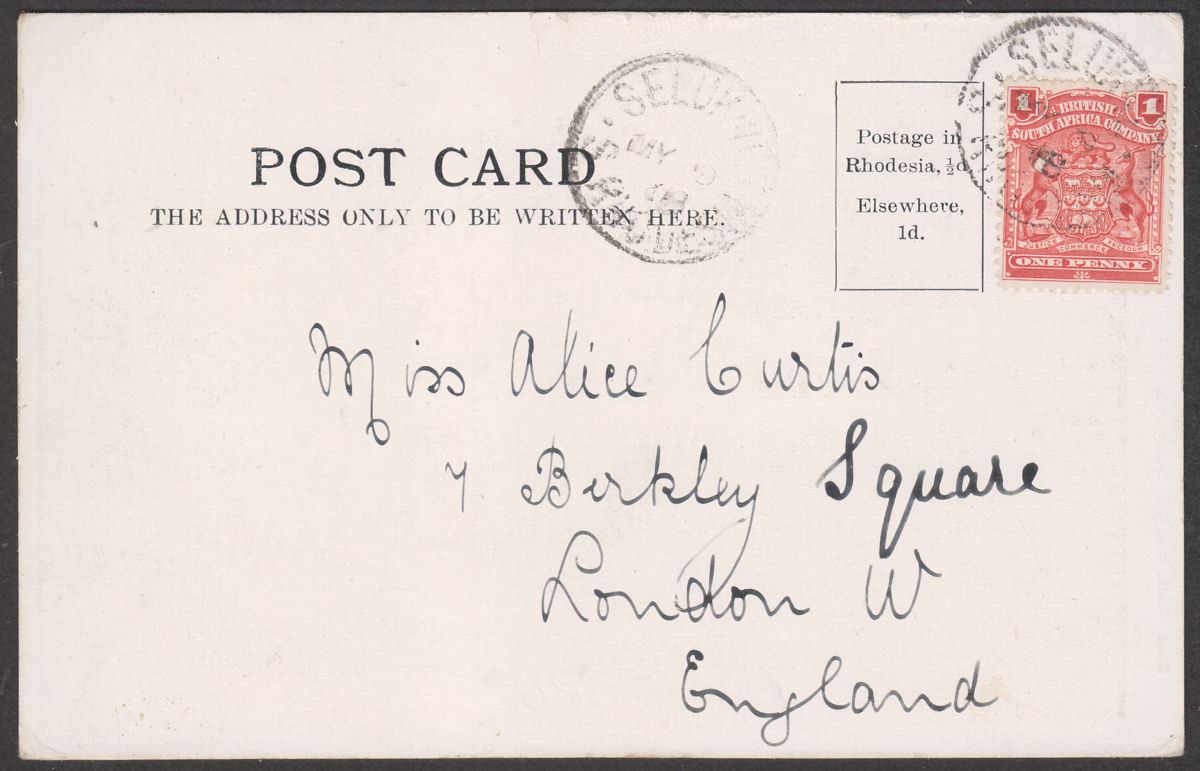 POST CARD
THE ADDRESS ONLY TO BE WRITTEN HERE.
SELUKW
MY 9
08
Postage in
Rhodesia, ½d
Elsewhere,
1d.
SELUK
1 1
BRITISH
SOUTH AFRICA COMPANY
JUSTICE COMMERCE FREEDOM
ONE PENNY
Miss Alice Curtis
7 Birkley Square
London W
England